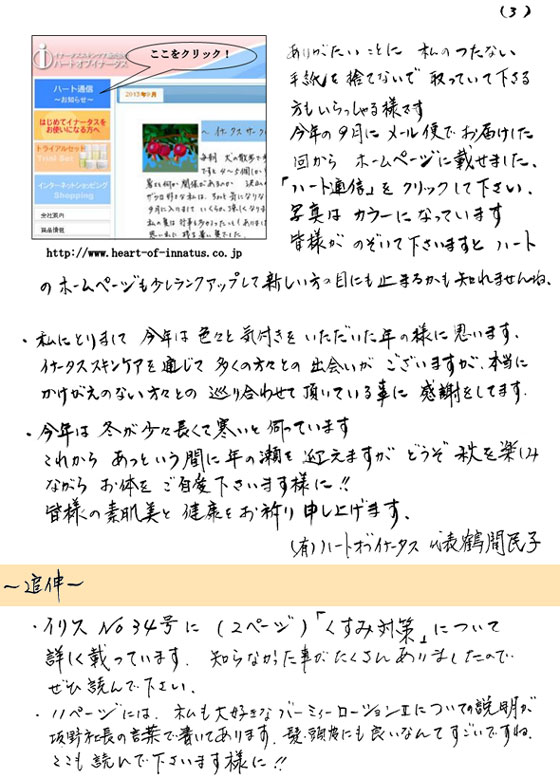 (3)
イナータススキンケア
ハートオブイナータス
ここをクリック！
ハート通信
～お知らせ～
はじめてイナータスを
お使いになる方へ
トライアルセット
Trial Set
インターネットショッピング
Shopping
会社案内
商品情報
2013年9月
http://www.heart-of-innatus.co.jp
ありがたいことに 私のつたない
手紙を捨てないで 取っていて下さる
方もいらっしゃる様です
今年の9月に メール便でお届けした
回から ホームページに載せました、
「ハート通信」を クリックして下さい、
写真は カラーになっています
皆様が のぞいて下さいますと ハート
のホームページも少しランクアップして新しい方の目にも止まるかも知れませんね、
・私にとりまして 今年は色々と気付きを いただいた年の様に思います、
イナータススキンケアを通じて 多くの方々との 出会いが ございますが、本当に
かけがえのない方々との 巡り合わせて頂いている事に 感謝をしてます、
・今年は冬が少々長くて寒いと伺っています
これから あっという間に年の瀬を 迎えますが どうぞ 秋を楽しみ
ながら お体を ご自愛下さいます様に!!
皆様の素肌美と 健康を お祈り申し上げます、
(有)ハートオブイナータス 代表鶴間民子
～追伸～
・イリス No34号に (2ページ)「くすみ対策」について
詳しく載っています、 知らなかった事がたくさんありましたので
ぜひ読んで下さい、
・11ページには、私も大好きなバーミィーローションⅡについての説明が
坂野社長の言葉で書いてあります、髪・頭皮にも良いなんてすごいですね、
ここも読んで下さいます様に!!